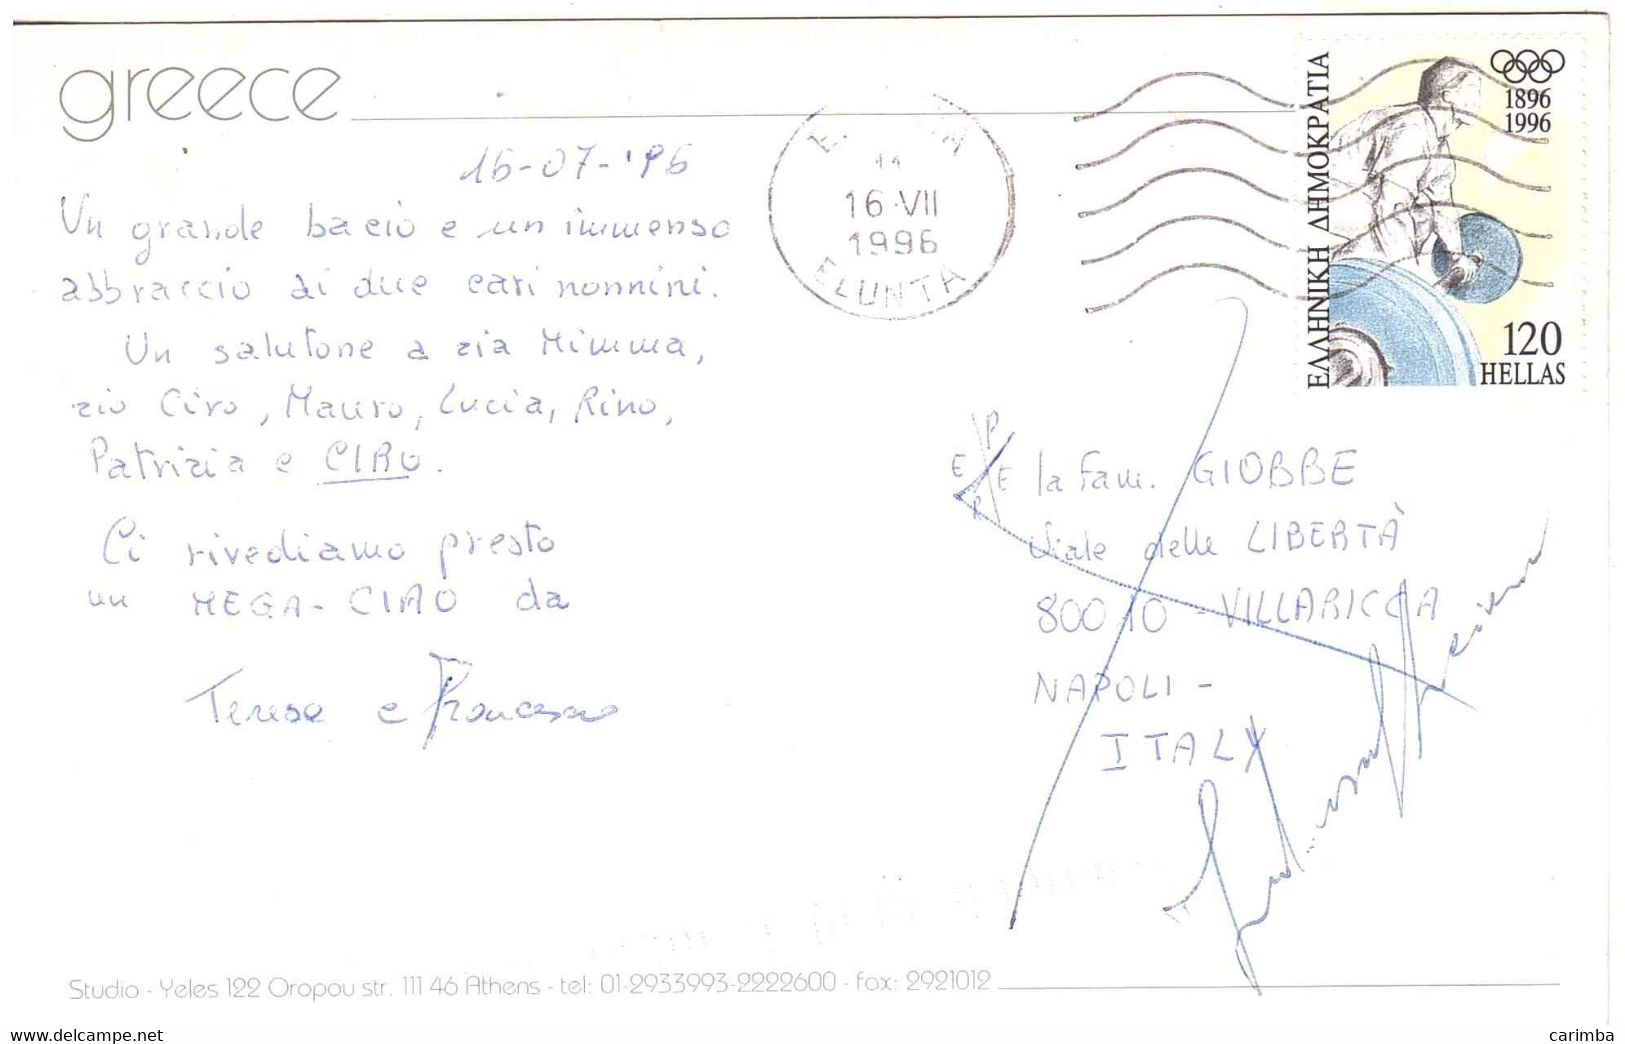 greece
16-07-'96
Un grande bacio e un immenso
abbraccio ai due cari nonnini.
Un salutone a zia Mimma,
zio Ciro, Mauro, Lucia, Rino,
Patrizia e CIRO.
Ci rivediamo presto
un MEGA-CIAO da
Teresa e Francesco
11
16·VII
1996
ELUNTA
ΕΛΛΗΝΙΚΗ ΔΗΜΟΚΡΑΤΙΑ
1896
1996
120
HELLAS
P
E E
R
la Fam. GIOBBE
Viale della LIBERTÀ
80010 - VILLARICCA
NAPOLI -
ITALY
Studio - Yeles 122 Oropou str. 111 46 Athens - tel: 01-2933993-2222600 - fax: 2921012
delcampe.net
carimba